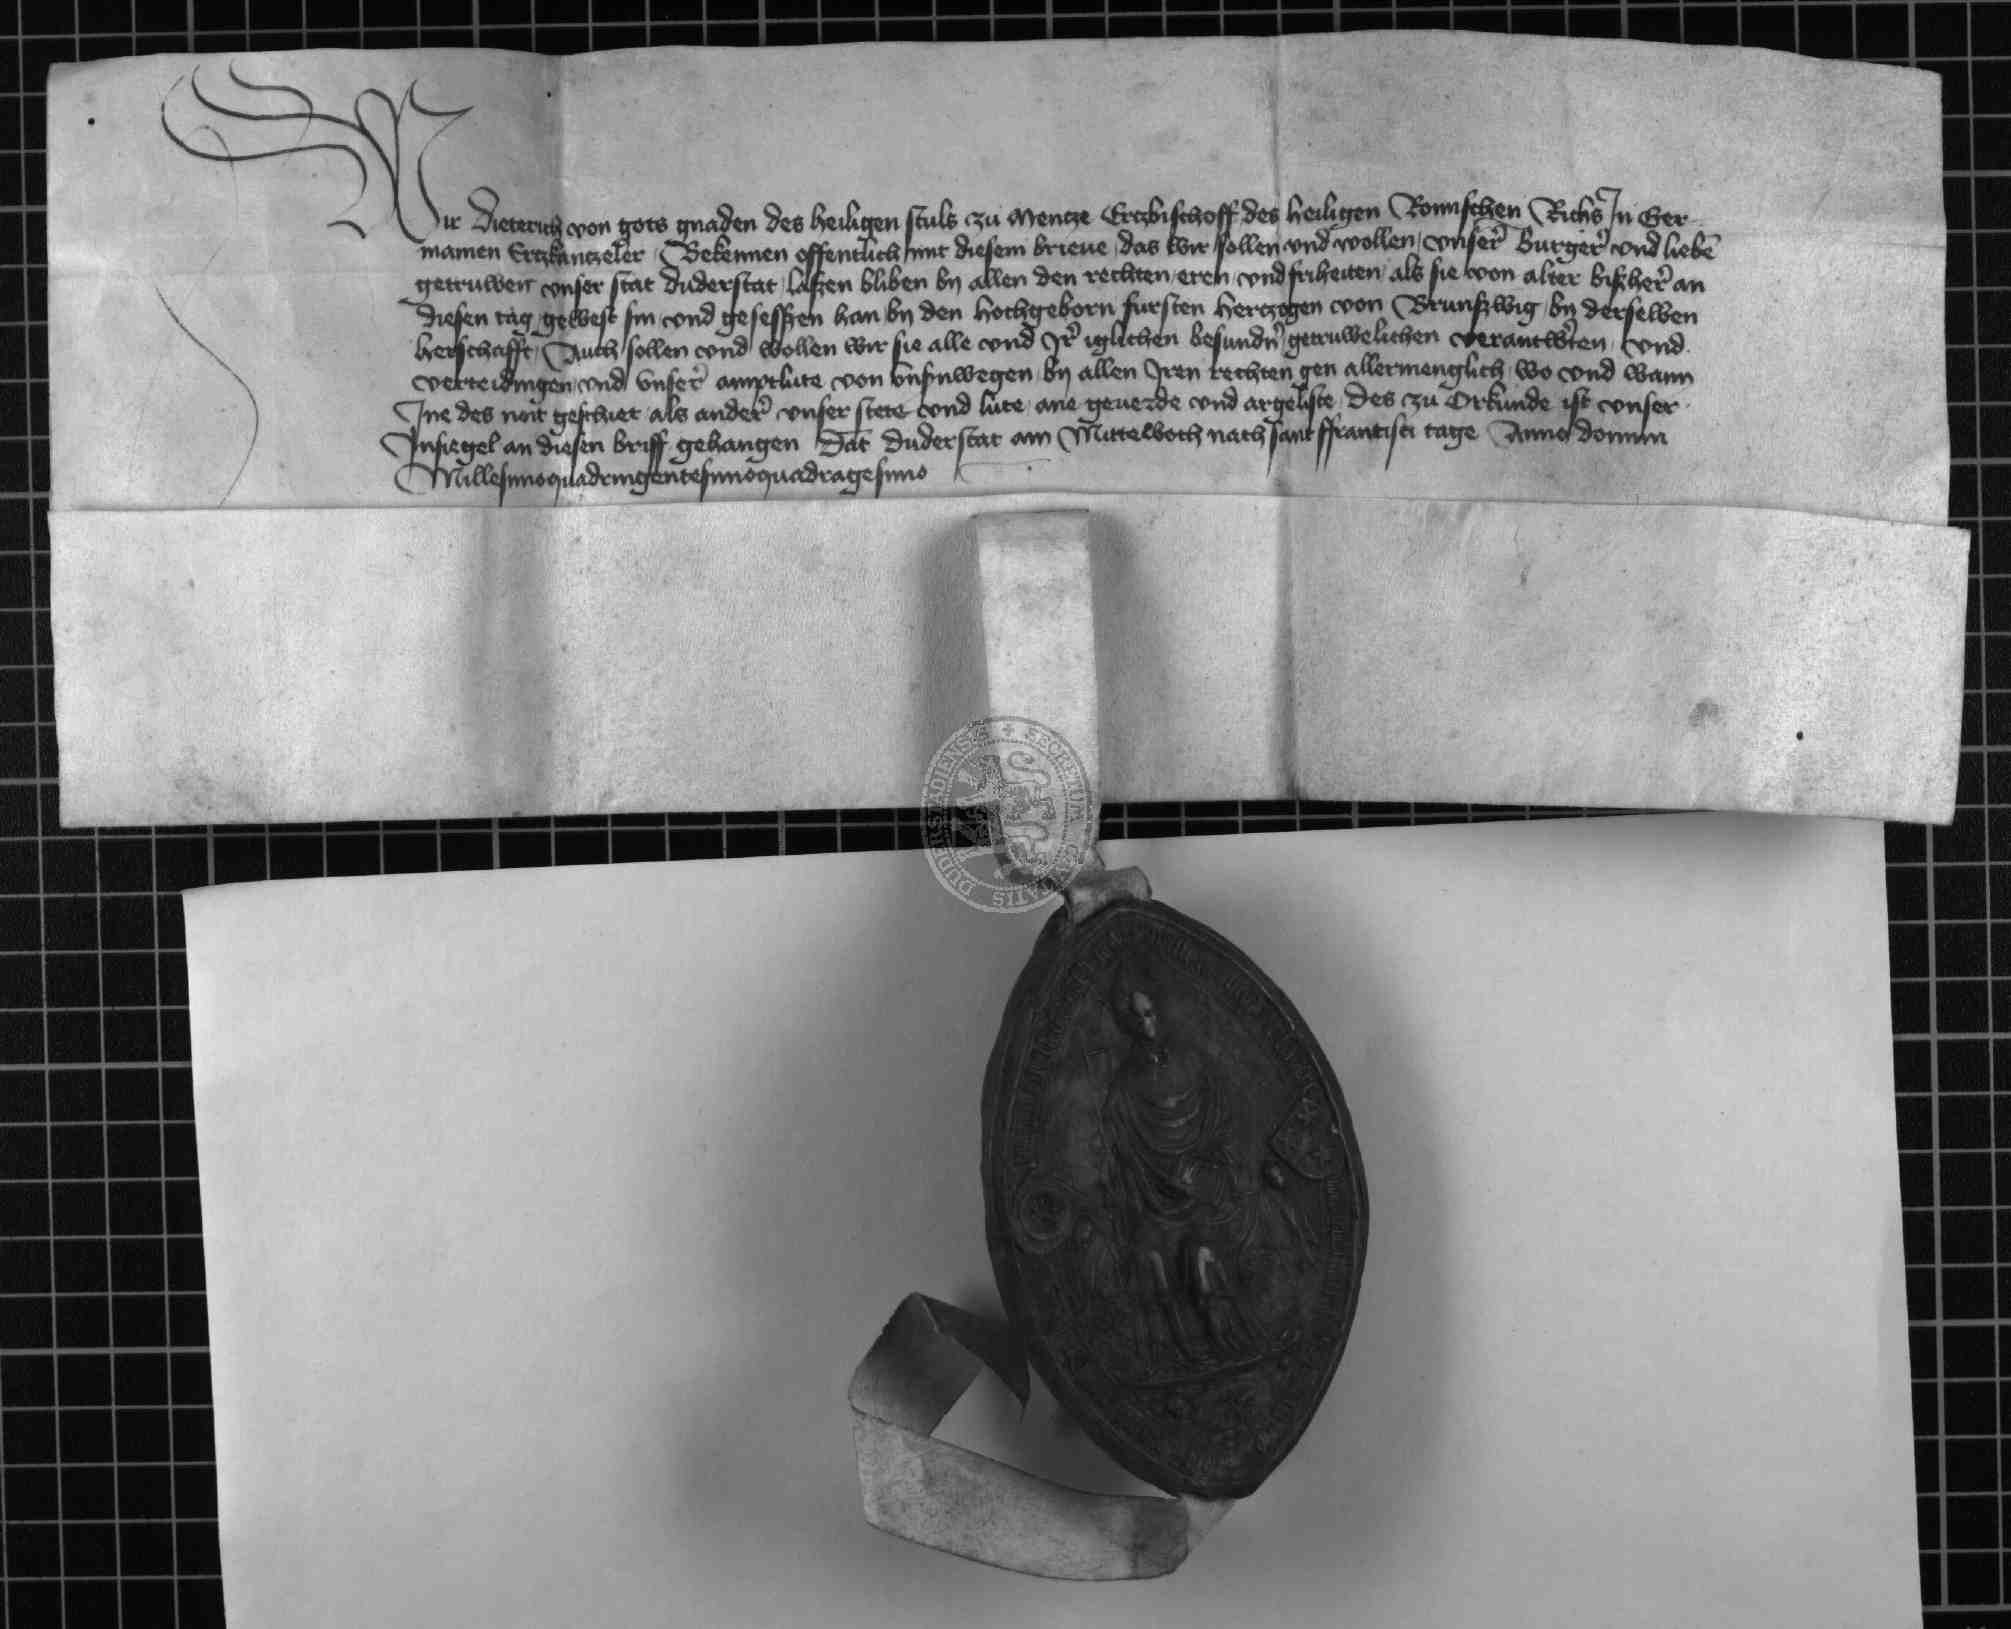 Wir Dieterich von gots gnaden des heiligen stuls zu Mentze Ertzbischoff des heiligen Romischen Richs In Ger
manien Ertzkantzeler Bekennen offentlich mit diesem brieue das wir sollen vnd wollen vnser̉ burger̉ vnd liebē
getruwen vnser stat Duderstat laßen bliben by allen den rechten eren vnd friheiten als sie von alter bißher̉ an
diesen tag gewest sin vnd gesessßen han by den hochgeborn fursten hertzogen von Brunßwig by derselben
herschafft Auch sollen vnd wollen wir sie alle vnd Jr̉ iglichen besundn̉ getruwelichen verantwẻten vnd
verteidingen vnd vnser̉ amptlute von vnsnwegen by allen Jren rechten gen allermenglich wo vnd wann
Jne des noit geschiet als ander̉ vnser stete vnd lute ane geuerde vnd argeliste Des zu Orkunde ist vnser
Jnsiegel an diesen briff gehangen Dat̄ Duderstat am Mittewoch nach sant ffrancisci tage Anno domini
Millesimoquadringentesimoquadragesimo
SECRETUM CIVITATIS DUDERSTADIENSIS